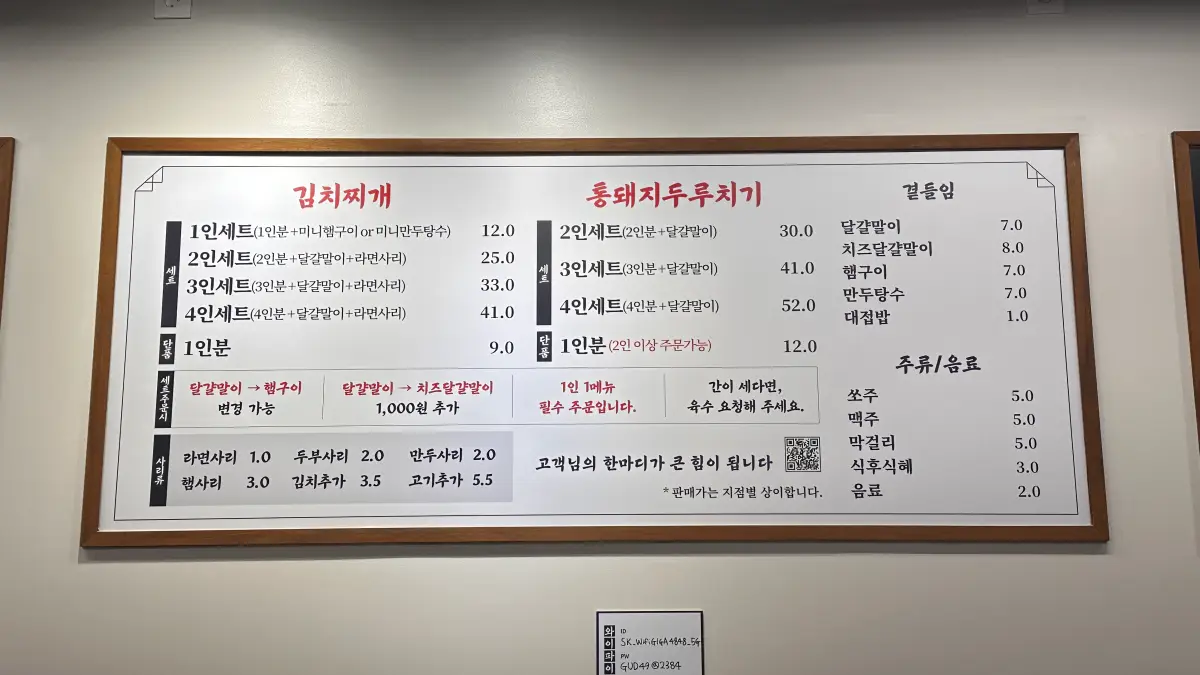 김치찌개
세트
1인세트(1인분+미니햄구이 or 미니만두탕수) 12.0
2인세트(2인분+달걀말이+라면사리) 25.0
3인세트(3인분+달걀말이+라면사리) 33.0
4인세트(4인분+달걀말이+라면사리) 41.0
단품
1인분 9.0
통돼지두루치기
세트
2인세트(2인분+달걀말이) 30.0
3인세트(3인분+달걀말이) 41.0
4인세트(4인분+달걀말이) 52.0
단품
1인분(2인 이상 주문가능) 12.0
세트주문시
달걀말이 → 햄구이
변경 가능
달걀말이 → 치즈달걀말이
1,000원 추가
1인 1메뉴
필수 주문입니다.
간이 세다면,
육수 요청해 주세요.
사리류
라면사리 1.0 두부사리 2.0 만두사리 2.0
햄사리 3.0 김치추가 3.5 고기추가 5.5
고객님의 한마디가 큰 힘이 됩니다
* 판매가는 지점별 상이합니다.
곁들임
달걀말이 7.0
치즈달걀말이 8.0
햄구이 7.0
만두탕수 7.0
대접밥 1.0
주류/음료
쏘주 5.0
맥주 5.0
막걸리 5.0
식후식혜 3.0
음료 2.0
와이파이
ID
SK_WiFiGIGA4848_5G
PW
GUD49@2384